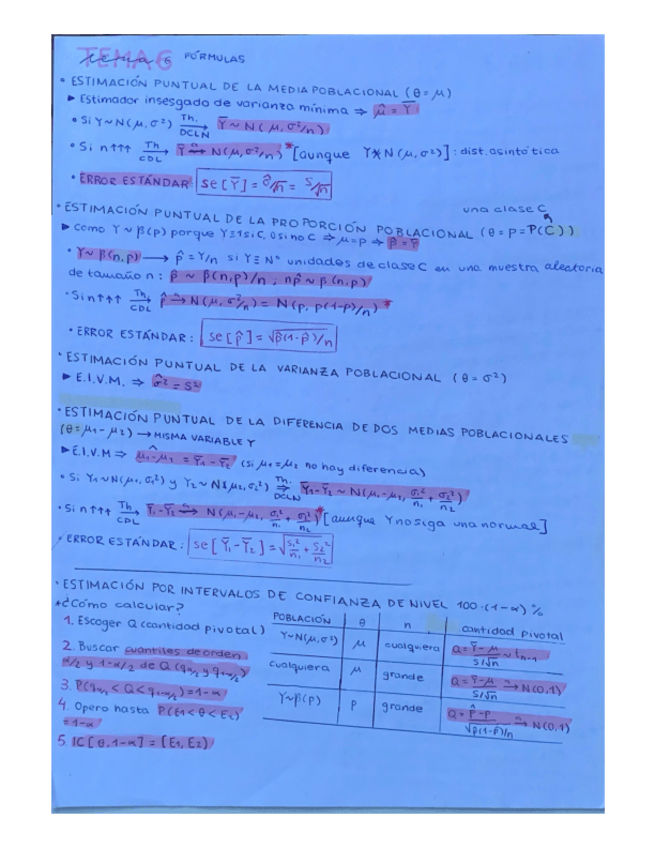 TEMA 6 FÓRMULAS
• ESTIMACIÓN PUNTUAL DE LA MEDIA POBLACIONAL (θ = μ)
▶ Estimador insesgado de varianza mínima ⇒ μ̂ = Ȳ
• Si Y∼N(μ, σ²) Th. DCLN → Ȳ ∼ N(μ, σ²/n)
• Si n↑↑↑ Th CDL → Ȳ → N(μ, σ²/n)* [aunque Y≁N(μ, σ²)]: dist. asintótica
• ERROR ESTÁNDAR se[Ȳ] = σ̂/√n = S/√n
una clase C
• ESTIMACIÓN PUNTUAL DE LA PROPORCIÓN POBLACIONAL (θ = p = P(C))
▶ Como Y ∼ β(p) porque Y≡1 si C, 0 si no C ⇒ μ=p ⇒ p̂ = Ȳ
• Y∼β(n,p) → p̂ = Y/n si Y ≡ Nº unidades de clase C en una muestra aleatoria
de tamaño n: p̂ ∼ β(n,p)/n ; np̂ ∼ β(n,p)
• Si n↑↑↑ Th. CDL → p̂ → N(μ, σ²/n) = N(p, p(1-p)/n)*
• ERROR ESTÁNDAR: se[p̂] = √p̂(1-p̂)/n
• ESTIMACIÓN PUNTUAL DE LA VARIANZA POBLACIONAL (θ = σ²)
▶ E.I.V.M. ⇒ σ̂² = S²
• ESTIMACIÓN PUNTUAL DE LA DIFERENCIA DE DOS MEDIAS POBLACIONALES
(θ = μ₁ - μ₂) → MISMA VARIABLE Y
▶ E.I.V.M ⇒ μ̂₁-μ₂ = Ȳ₁ - Ȳ₂ (si μ₁=μ₂ no hay diferencia)
• Si Y₁∼N(μ₁, σ₁²) y Y₂∼N(μ₂, σ₂²) Th. DCLN ⇒ Ȳ₁-Ȳ₂ ∼ N(μ₁-μ₂, σ₁²/n₁ + σ₂²/n₂)
• Si n↑↑↑ Th CDL → Ȳ₁-Ȳ₂ → N(μ₁-μ₂, σ₁²/n₁ + σ₂²/n₂)* [aunque Y no siga una normal]
• ERROR ESTÁNDAR: se[Ȳ₁-Ȳ₂] = √S₁²/n₁ + S₂²/n₂
• ESTIMACIÓN POR INTERVALOS DE CONFIANZA DE NIVEL 100·(1-α) %
*¿Cómo calcular?
1. Escoger Q (cantidad pivotal)
2. Buscar cuantiles de orden
α/2 y 1-α/2 de Q (qα/2 y q1-α/2)
3. P(qα/2 < Q < q1-α/2) = 1-α
4. Opero hasta P(E₁ < θ < E₂)
= 1-α
5 IC[θ, 1-α] = (E₁, E₂)
POBLACIÓN θ n cantidad pivotal
Y∼N(μ, σ²) μ cualquiera Q = Ȳ-μ / S/√n ∼ tn-1
cualquiera μ grande Q = Ȳ-μ / S/√n → N(0,1)
Y∼β(p) p grande Q = p̂-p / √p̂(1-p̂)/n → N(0,1)